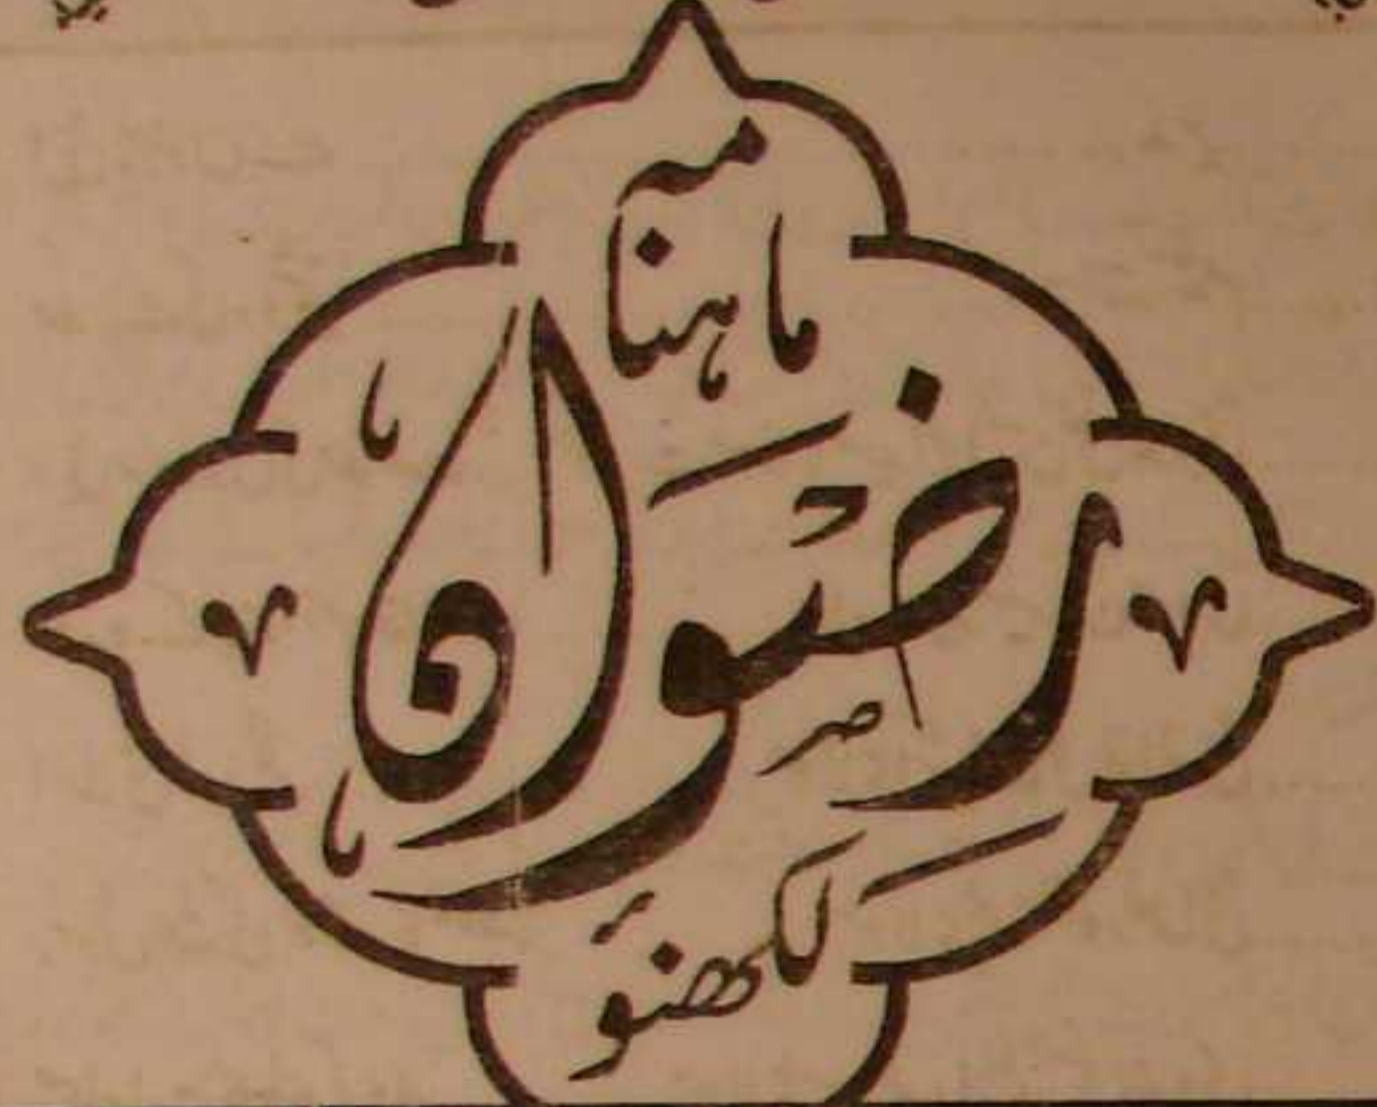 ماہنامہ
رضوان
لکھنؤ